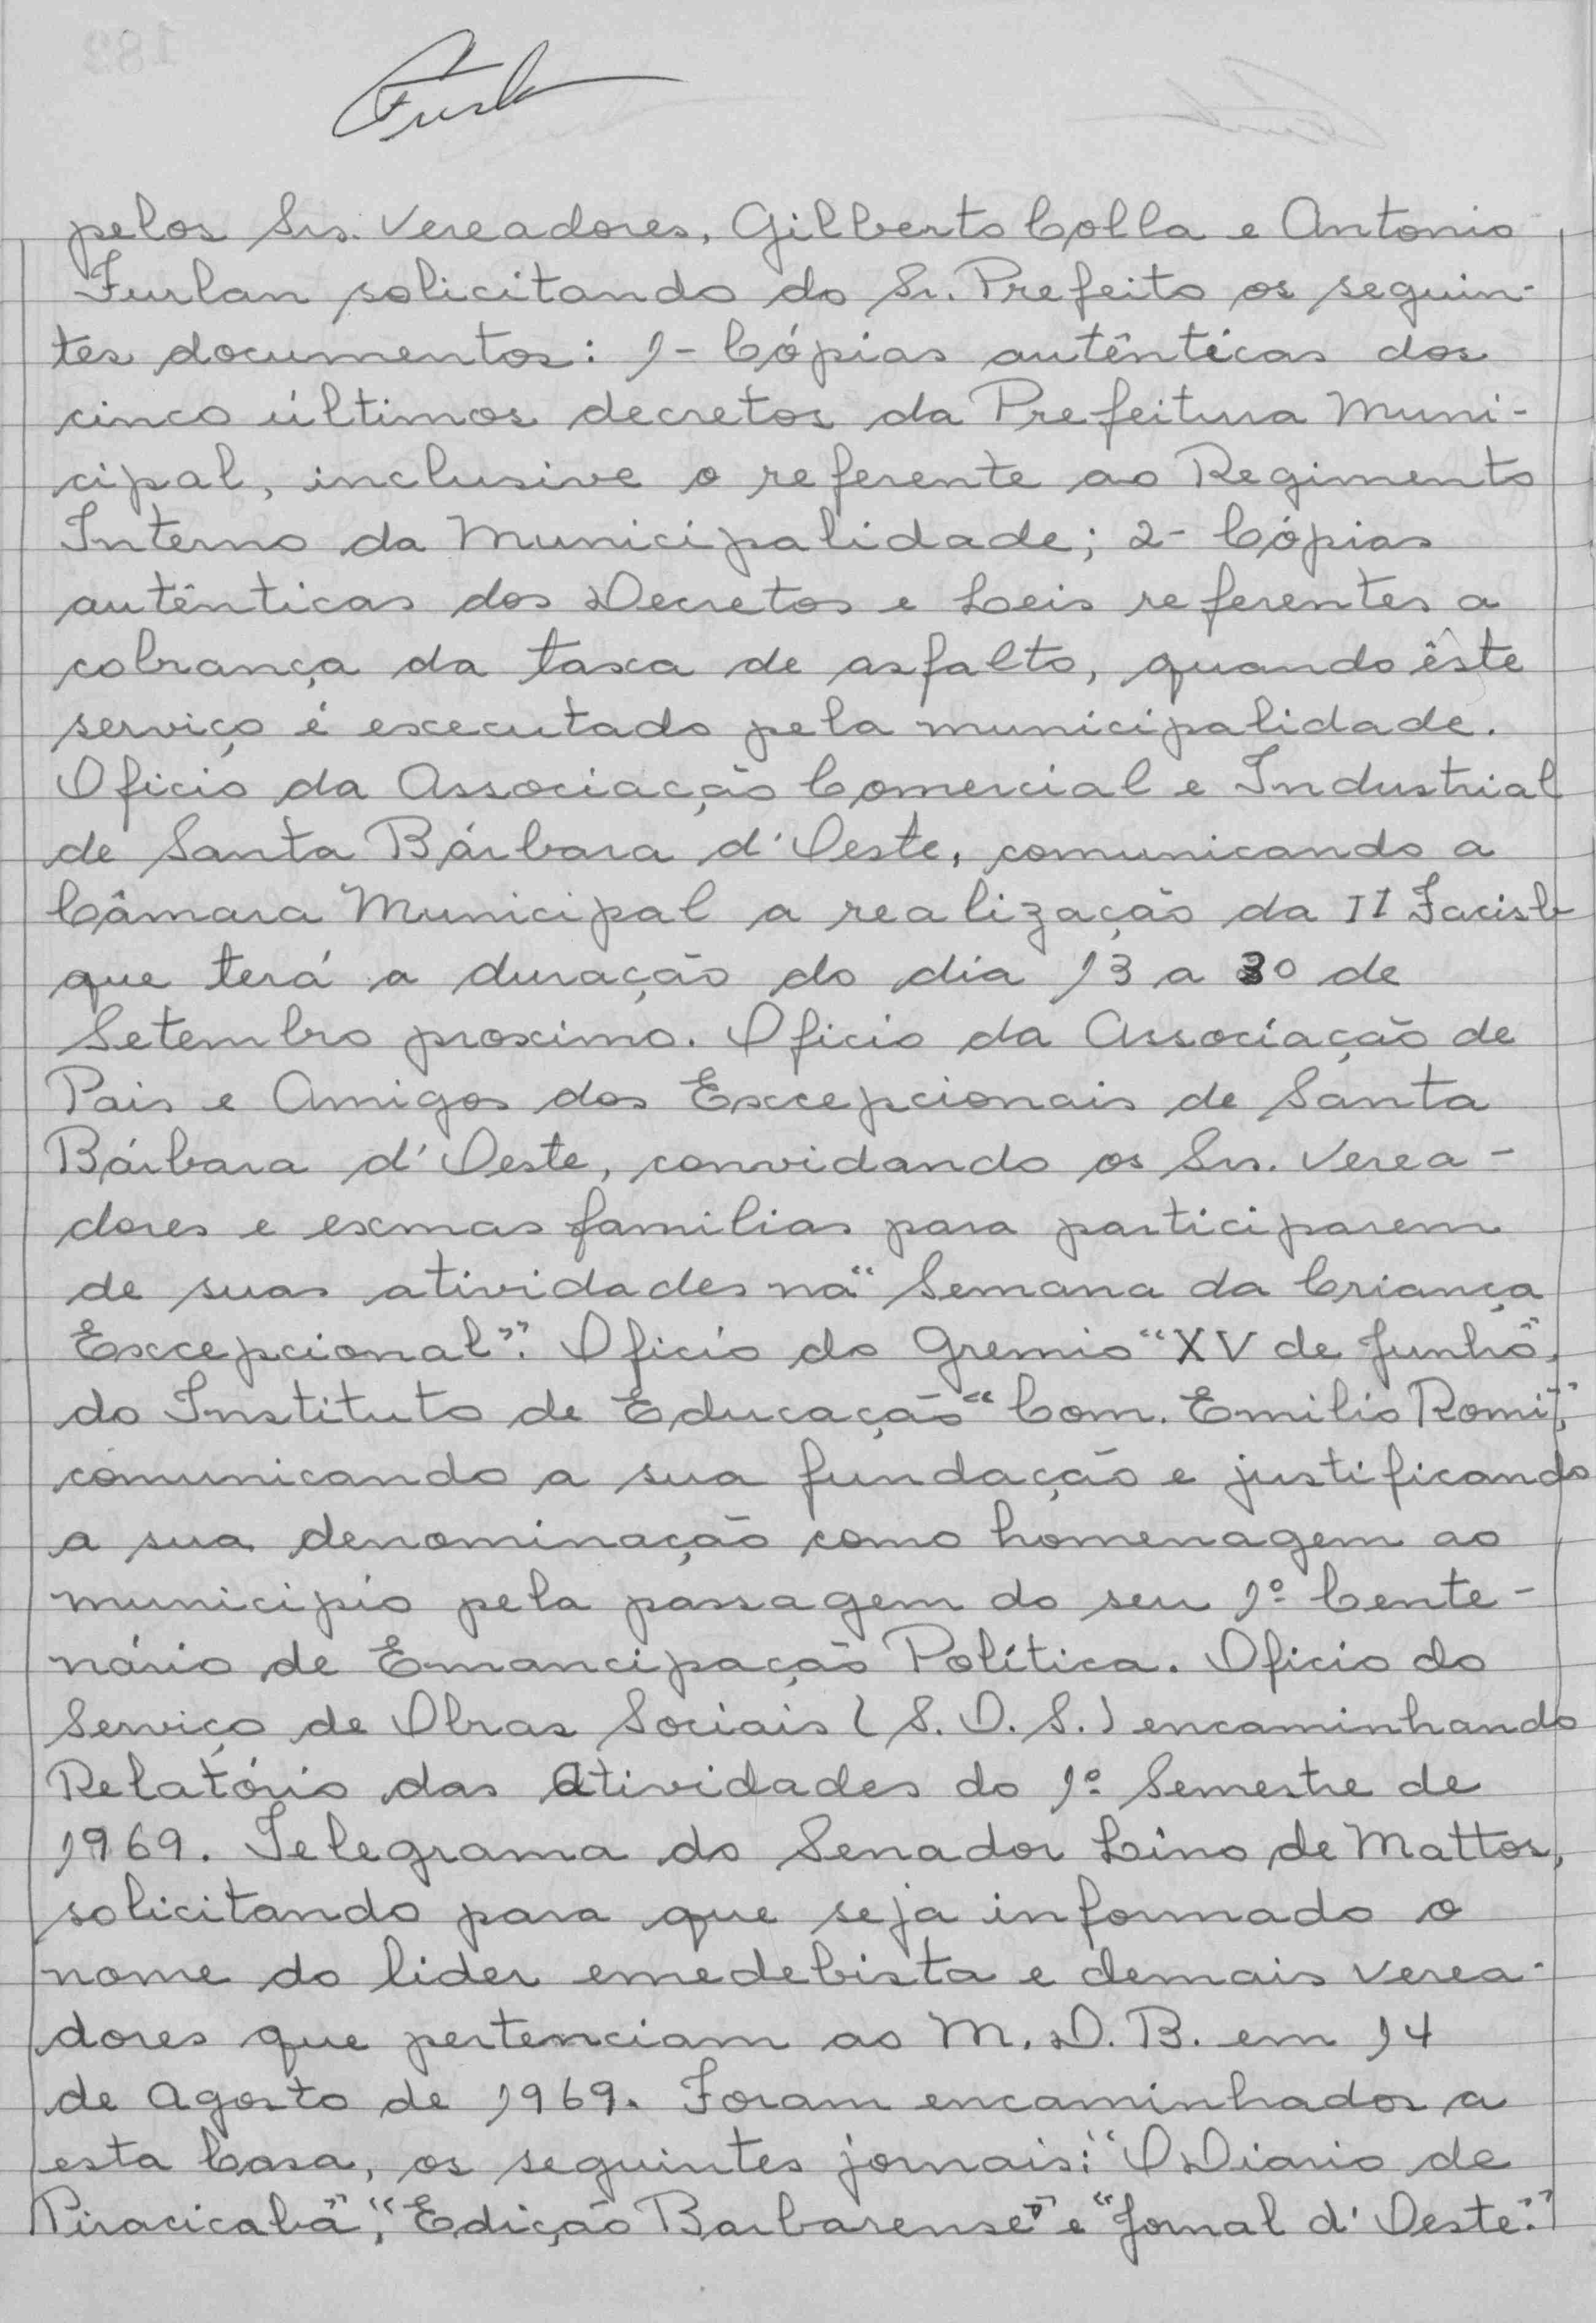 pelos Srs. Vereadores, Gilberto Colla e Antonio
Furlan solicitando do Sr. Prefeito os seguin-
tes documentos: 1- Cópias autênticas dos
cinco últimos decretos da Prefeitura Muni-
cipal, inclusive o referente ao Regimento
Interno da Municipalidade; 2- Cópias
autênticas dos Decretos e Leis referentes a
cobrança da taxa de asfalto, quando êste
serviço é executado pela municipalidade.
Oficio da Associação Comercial e Industrial
de Santa Bárbara d'Oeste, comunicando a
Câmara Municipal a realização da II Facisb
que terá a duração do dia 13 a 30 de
Setembro proximo. Oficio da Associação de
Pais e Amigos dos Excepcionais de Santa
Bárbara d'Oeste, convidando os Srs. Verea-
dores e exmas familias para participarem
de suas atividades na "Semana da Criança
Excepcional". Oficio do Gremio "XV de Junho",
do Instituto de Educação "Com. Emilio Romi",
comunicando a sua fundação e justificando
a sua denominação como homenagem ao
municipio pela passagem do seu 1º Cente-
nário de Emancipação Política. Oficio do
Serviço de Obras Sociais (S.O.S.) encaminhando
Relatório das Atividades do 1º Semestre de
1969. Telegrama do Senador Lino de Mattos,
solicitando para que seja informado o
nome do lider emedebista e demais verea-
dores que pertenciam ao M.D.B. em 14
de Agosto de 1969. Foram encaminhados a
esta Casa, os seguintes jornais: "O Diario de
Piracicaba", "Edição Barbarense" e "Jornal d'Oeste".